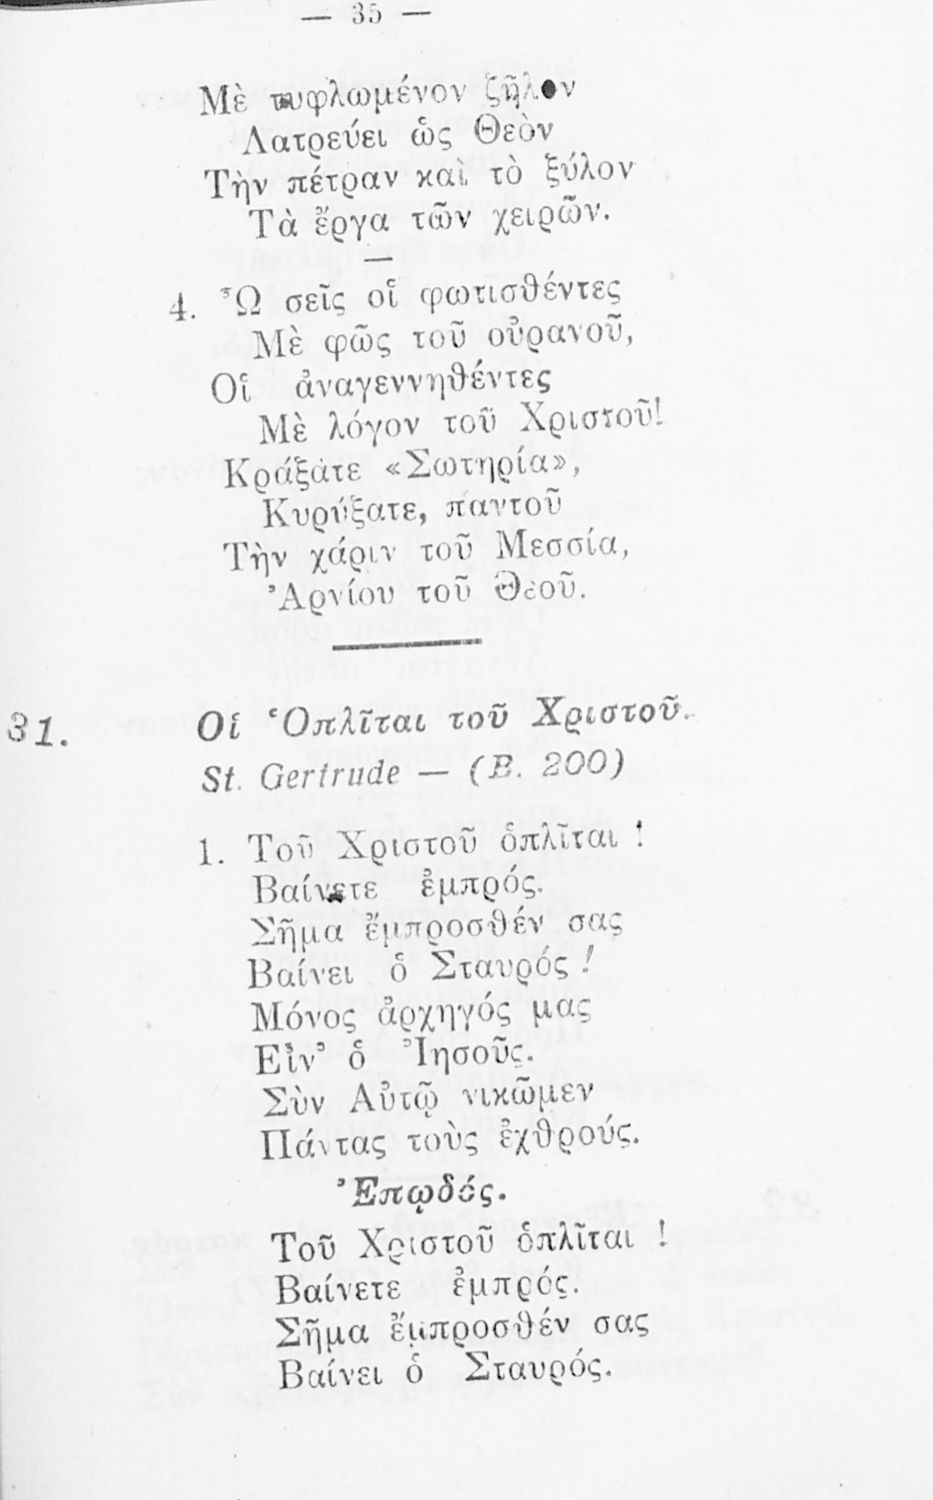 — 35 —
Μὲ τυφλωμένον ζῆλον
Λατρεύει ὡς Θεὸν
Τὴν πέτραν καὶ τὸ ξύλον
Τὰ ἔργα τῶν χειρῶν.
—
4. Ὦ σεῖς οἱ φωτισθέντες
Μὲ φῶς τοῦ οὐρανοῦ,
Οἱ ἀναγεννηθέντες
Μὲ λόγον τοῦ Χριστοῦ!
Κράξατε «Σωτηρία»,
Κυρύξατε, παντοῦ
Τὴν χάριν τοῦ Μεσσία,
Ἀρνίου τοῦ Θεοῦ.
31. Οἱ Ὁπλῖται τοῦ Χριστοῦ.
St. Gertrude — (B. 200)
1. Τοῦ Χριστοῦ ὁπλῖται !
Βαίνετε ἐμπρός.
Σῆμα ἔμπροσθέν σας
Βαίνει ὁ Σταυρός !
Μόνος ἀρχηγός μας
Εἶν' ὁ Ἰησοῦς.
Σὺν Αὐτῷ νικῶμεν
Πάντας τοὺς ἐχθρούς.
Ἐπῳδός.
Τοῦ Χριστοῦ ὁπλῖται !
Βαίνετε ἐμπρός.
Σῆμα ἔμπροσθέν σας
Βαίνει ὁ Σταυρός.